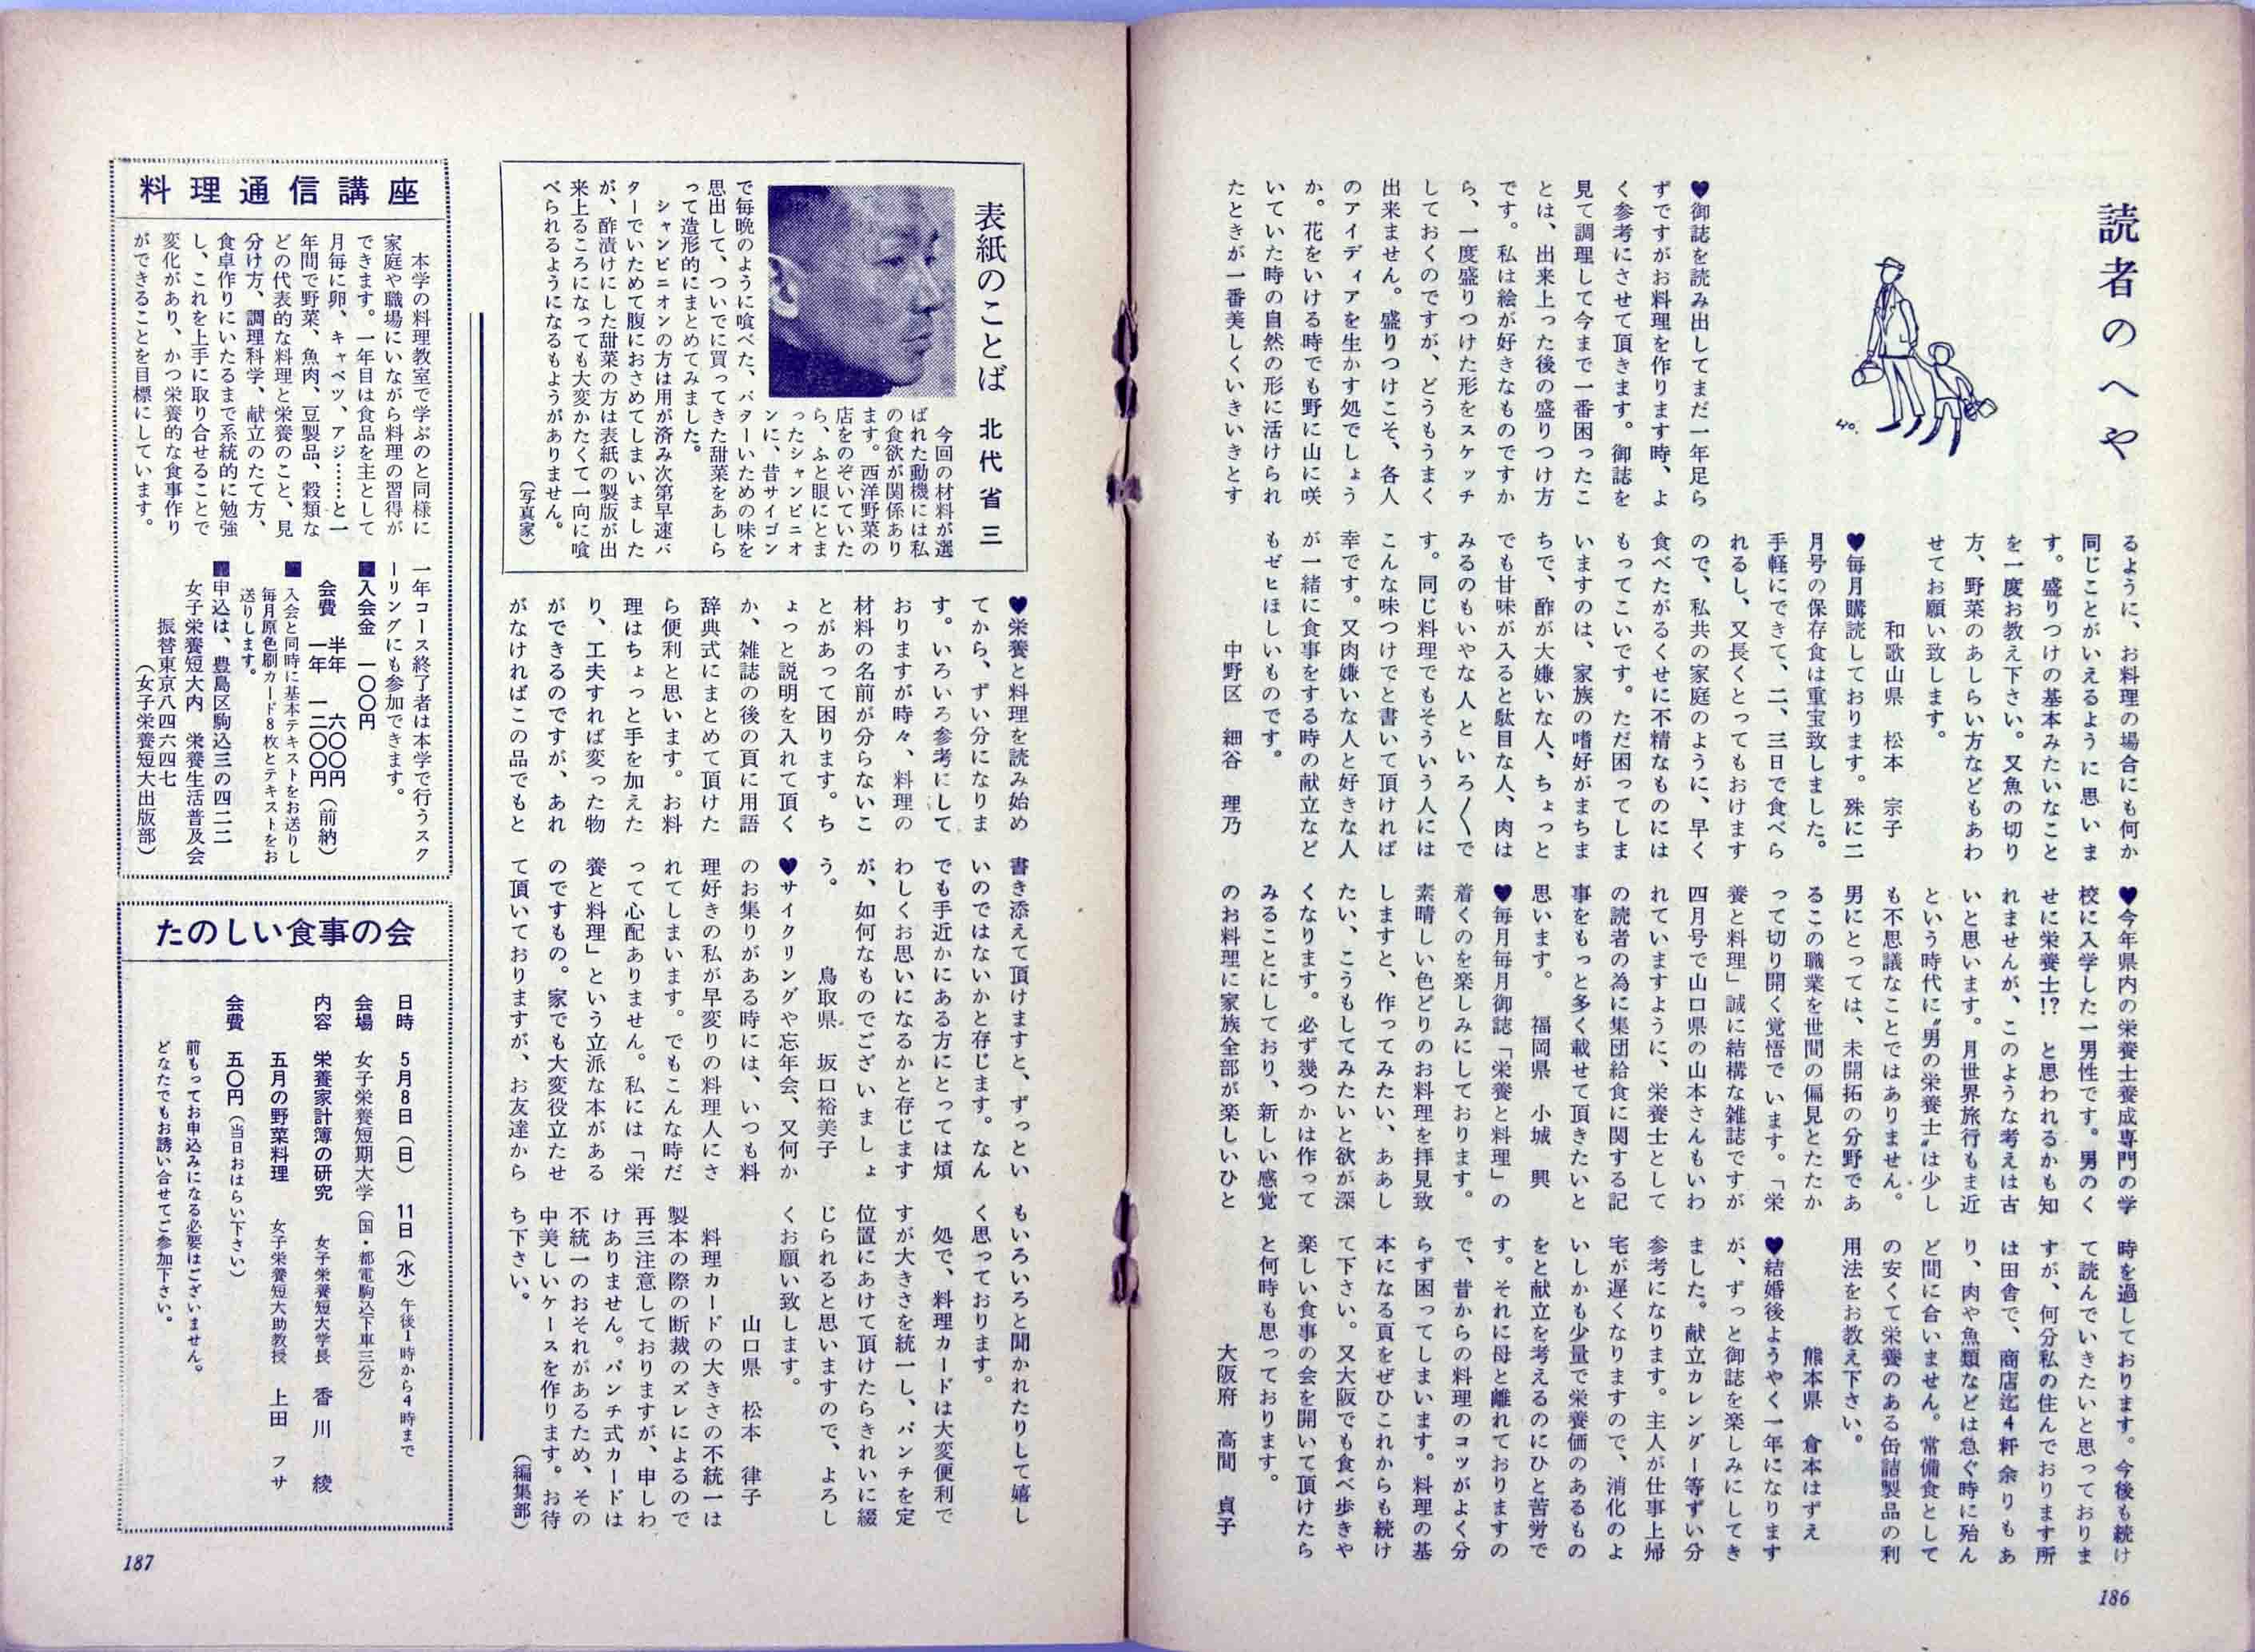 読者のへや
♥御誌を読み出してまだ一年足ら
ずですがお料理を作ります時、よ
く参考にさせて頂きます。御誌を
見て調理して今まで一番困ったこ
とは、出来上った後の盛りつけ方
です。私は絵が好きなものですか
ら、一度盛りつけた形をスケッチ
しておくのですが、どうもうまく
出来ません。盛りつけこそ、各人
のアイディアを生かす処でしょう
か。花をいける時でも野に山に咲
いていた時の自然の形に活けられ
たときが一番美しくいきいきとす
るように、お料理の場合にも何か
同じことがいえるように思いま
す。盛りつけの基本みたいなこと
を一度お教え下さい。又魚の切り
方、野菜のあしらい方などもあわ
せてお願い致します。
和歌山県 松本 宗子
♥毎月購読しております。殊に二
月号の保存食は重宝致しました。
手軽にできて、二、三日で食べら
れるし、又長くとってもおけます
ので、私共の家庭のように、早く
食べたがるくせに不精なものには
もってこいです。ただ困ってしま
いますのは、家族の嗜好がまちま
ちで、酢が大嫌いな人、ちょっと
でも甘味が入ると駄目な人、肉は
みるのもいやな人といろ〱で
す。同じ料理でもそういう人には
こんな味つけでと書いて頂ければ
幸です。又肉嫌いな人と好きな人
が一緒に食事をする時の献立など
もゼヒほしいものです。
中野区 細谷 理乃
♥今年県内の栄養士養成専門の学
校に入学した一男性です。男のく
せに栄養士!? と思われるかも知
れませんが、このような考えは古
いと思います。月世界旅行もま近
という時代に〝男の栄養士〟は少し
も不思議なことではありません。
男にとっては、未開拓の分野であ
るこの職業を世間の偏見とたたか
って切り開く覚悟でいます。「栄
養と料理」誠に結構な雑誌ですが
四月号で山口県の山本さんもいわ
れていますように、栄養士として
の読者の為に集団給食に関する記
事をもっと多く載せて頂きたいと
思います。 福岡県 小城 興
♥毎月毎月御誌「栄養と料理」の
着くのを楽しみにしております。
素晴しい色どりのお料理を拝見致
しますと、作ってみたい、ああし
たい、こうもしてみたいと欲が深
くなります。必ず幾つかは作って
みることにしており、新しい感覚
のお料理に家族全部が楽しいひと
時を過しております。今後も続け
て読んでいきたいと思っておりま
すが、何分私の住んでおります所
は田舎で、商店迄4軒余りもあ
り、肉や魚類などは急ぐ時に殆ん
ど間に合いません。常備食として
の安くて栄養のある缶詰製品の利
用法をお教え下さい。
熊本県 倉本はずえ
♥結婚後ようやく一年になります
が、ずっと御誌を楽しみにしてき
ました。献立カレンダー等ずい分
参考になります。主人が仕事上帰
宅が遅くなりますので、消化のよ
いしかも少量で栄養価のあるもの
をと献立を考えるのにひと苦労で
す。それに母と離れておりますの
で、昔からの料理のコツがよく分
らず困ってしまいます。料理の基
本になる頁をぜひこれからも続け
て下さい。又大阪でも食べ歩きや
楽しい食事の会を開いて頂けたら
と何時も思っております。
大阪府 高間 貞子
186
表紙のことば 北代省三
今回の材料が選
ばれた動機には私
の食欲が関係あり
ます。西洋野菜の
店をのぞいていた
ら、ふと眼にとま
ったシャンピニオ
ンに、昔サイゴン
で毎晩のように喰べた、バターいための味を
思出して、ついでに買ってきた甜菜をあしら
って造形的にまとめてみました。
シャンピニオンの方は用が済み次第早速バ
ターでいためて腹におさめてしまいました
が、酢漬けにした甜菜の方は表紙の製版が出
来上るころになっても大変かたくて一向に喰
べられるようになるもようがありません。
(写真家)
♥栄養と料理を読み始め
てから、ずい分になりま
す。いろいろ参考にして
おりますが時々、料理の
材料の名前が分らないこ
とがあって困ります。ち
ょっと説明を入れて頂く
か、雑誌の後の頁に用語
辞典式にまとめて頂けた
ら便利と思います。お料
理はちょっと手を加えた
り、工夫すれば変った物
ができるのですが、あれ
がなければこの品でもと
書き添えて頂けますと、ずっとい
いのではないかと存じます。なん
でも手近かにある方にとっては煩
わしくお思いになるかと存じます
が、如何なものでございましょ
う。
鳥取県 坂口裕美子
♥サイクリングや忘年会、又何か
のお集りがある時には、いつも料
理好きの私が早変りの料理人にさ
れてしまいます。でもこんな時だ
って心配ありません。私には「栄
養と料理」という立派な本がある
のですもの。家でも大変役立たせ
て頂いておりますが、お友達から
もいろいろと聞かれたりして嬉し
く思っております。
処で、料理カードは大変便利で
すが大きさを統一し、パンチを定
位置にあけて頂けたらきれいに綴
じられると思いますので、よろし
くお願い致します。
山口県 松本 律子
料理カードの大きさの不統一は
製本の際の断裁のズレによるので
再三注意しておりますが、申しわ
けありません。パンチ式カードは
不統一のおそれがあるため、その
中美しいケースを作ります。お待
ち下さい。 (編集部)
料理通信講座
本学の料理教室で学ぶのと同様に
家庭や職場にいながら料理の習得が
できます。一年目は食品を主として
月毎に卵、キャベツ、アジ……と一
年間で野菜、魚肉、豆製品、穀類な
どの代表的な料理と栄養のこと、見
分け方、調理科学、献立のたて方、
食卓作りにいたるまで系統的に勉強
し、これを上手に取り合せることで
変化があり、かつ栄養的な食事作り
ができることを目標にしています。
一年コース終了者は本学で行うスク
ーリングにも参加できます。
■入会金 一〇〇円
会費 半年 六〇〇円
一年 一二〇〇円 (前納)
■入会と同時に基本テキストをお送りし
毎月原色刷カード8枚とテキストをお
送りします。
■申込は、豊島区駒込三の四二二
女子栄養短大内 栄養生活普及会
振替東京八四六四七
(女子栄養短大出版部)
たのしい食事の会
日時 5月8日(日) 11日(水)午後1時から4時まで
会場 女子栄養短期大学(国・都電駒込下車三分)
内容 栄養家計簿の研究 女子栄養短大学長 香川 綾
五月の野菜料理 女子栄養短大助教授 上田 フサ
会費 五〇円(当日おはらい下さい)
前もってお申込みになる必要はございません。
どなたでもお誘い合せてご参加下さい。
187